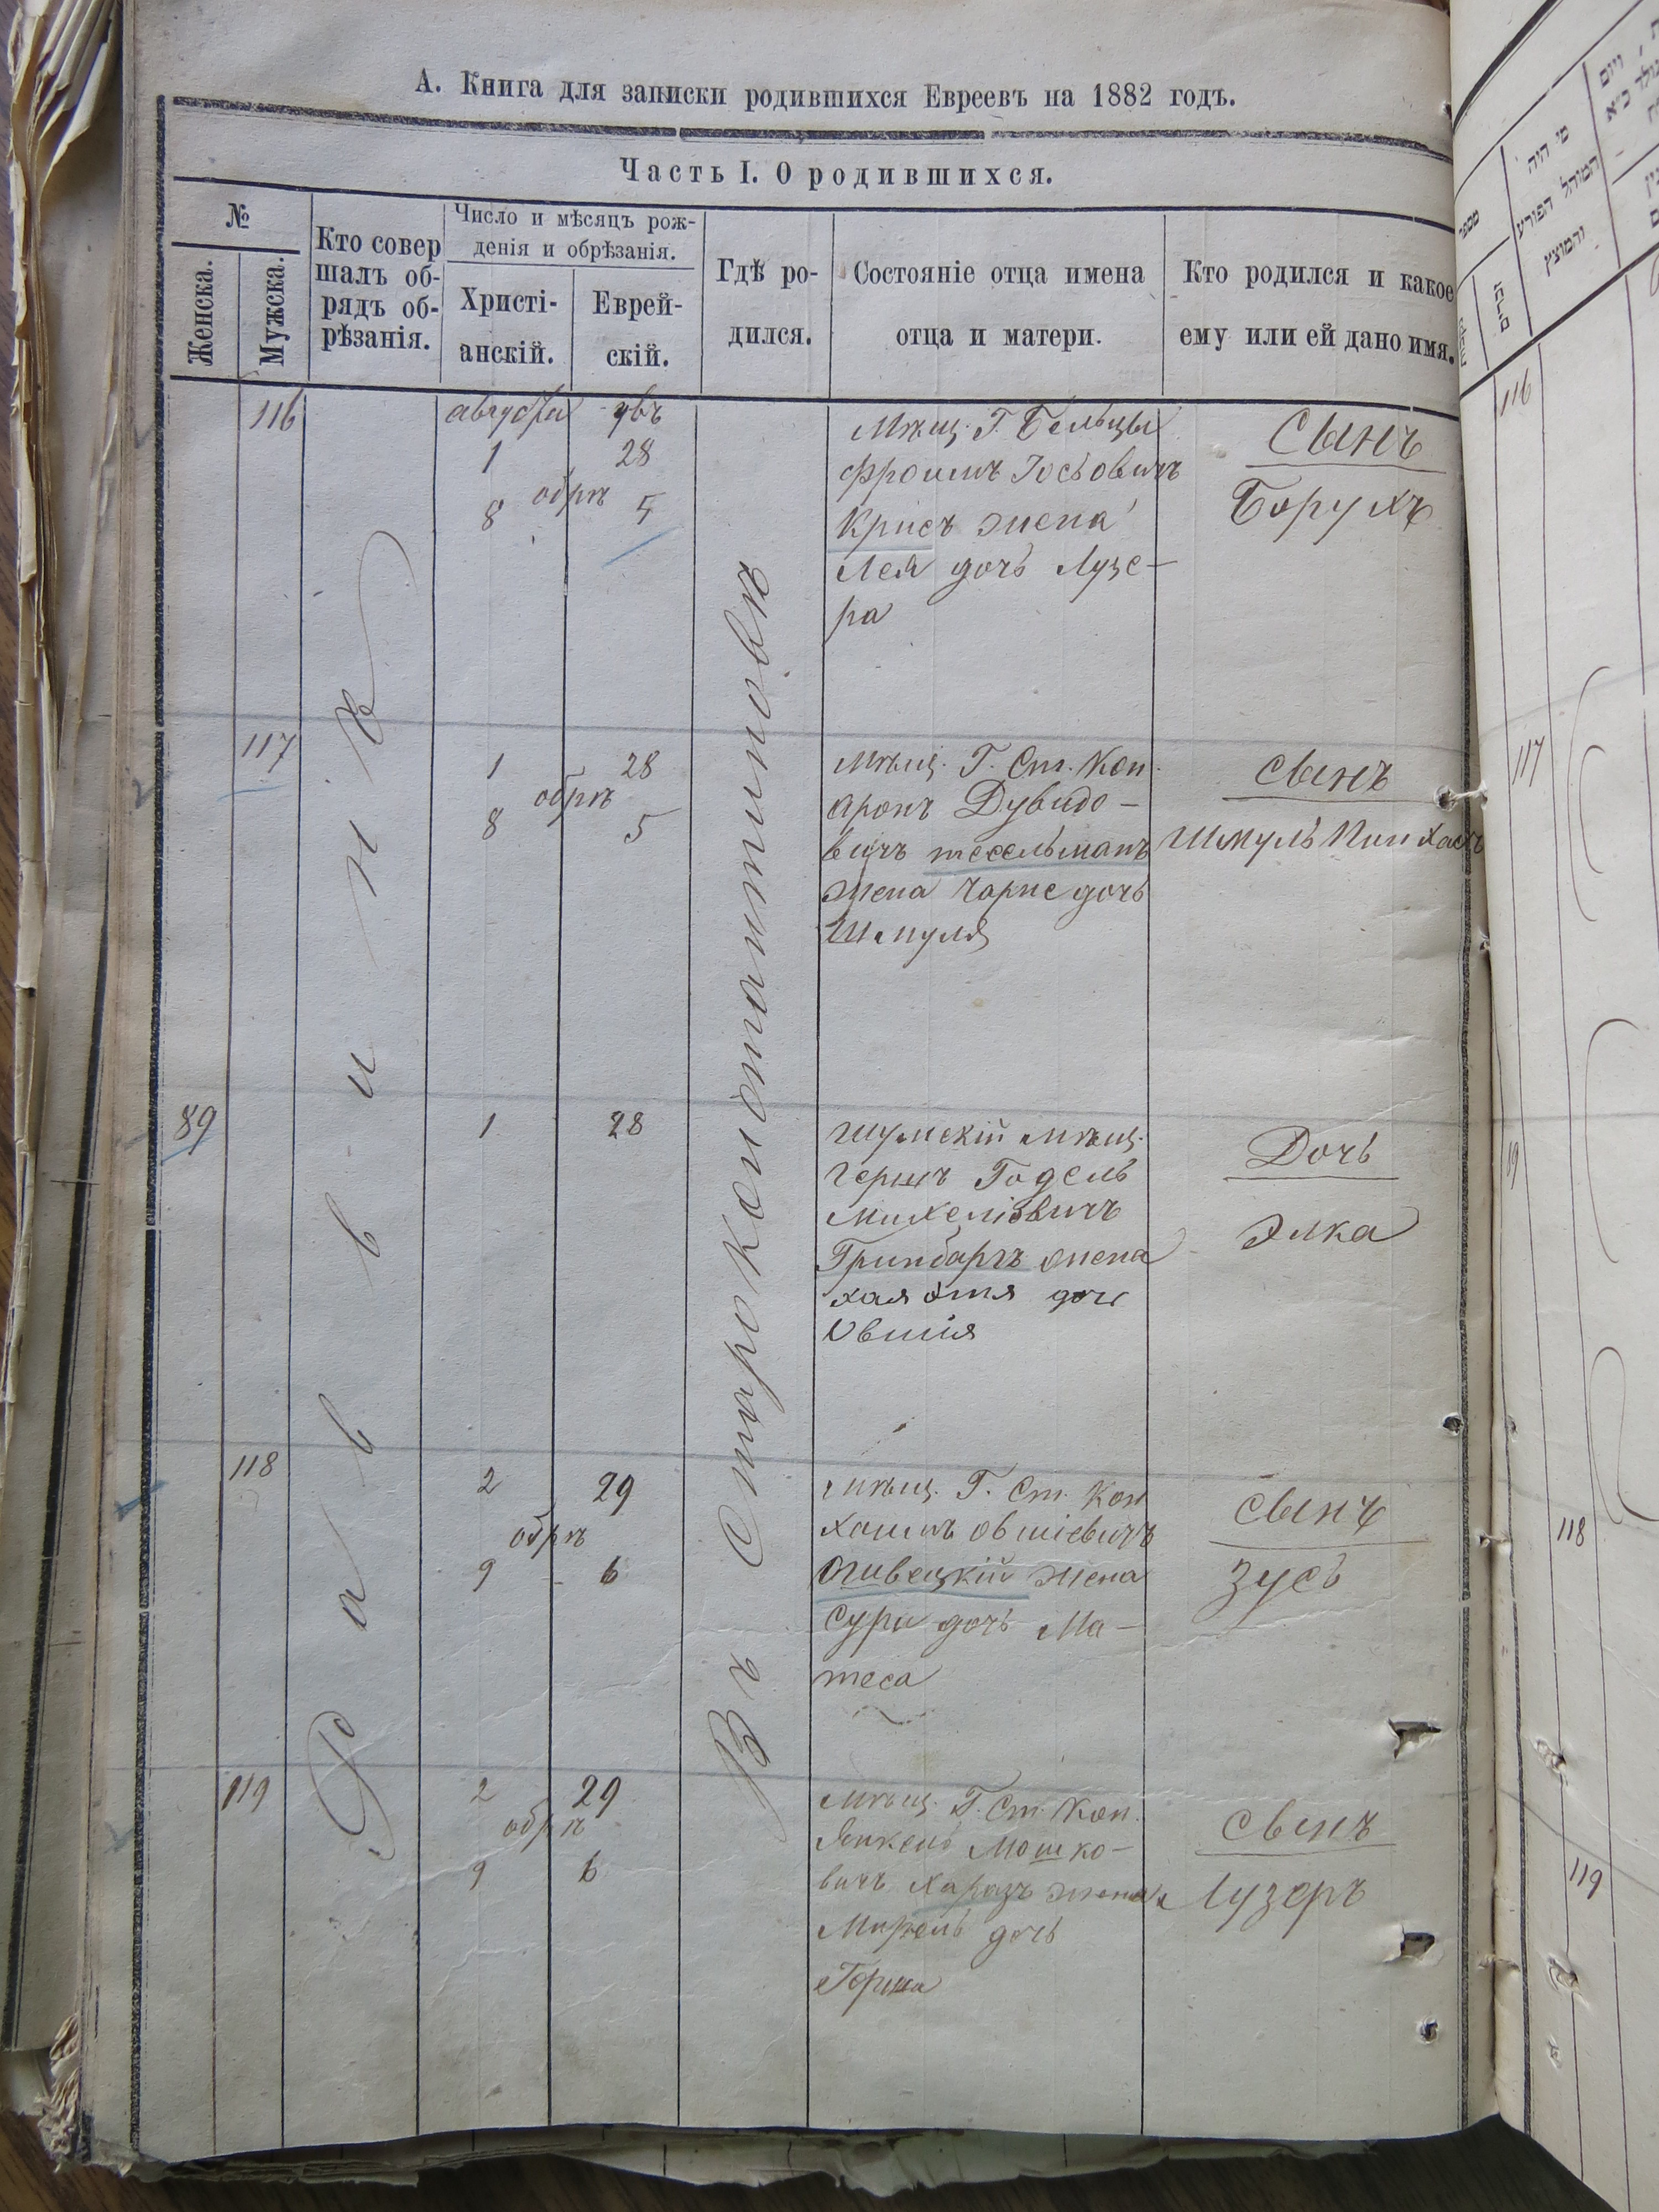 А. Книга для записки родившихся Евреевъ на 1882 годъ.
Часть I. О родившихся.
№
Женска.
Мужска.
Кто совер
шалъ об-
рядъ об-
рѣзанія.
Число и мѣсяцъ рож-
денія и обрѣзанія.
Христі-
анскій.
Еврей-
скій.
Гдѣ ро-
дился.
Состояніе отца имена
отца и матери.
Кто родился и какое
ему или ей дано имя.
Раввинъ
Въ Староконстантиновѣ
116
августа
1
28
обрѣ
8
5
Мѣщ. Г. Бельцы
Фроимъ Іосьовичъ
Крисъ жена
Лея дочь Лузе-
ра
Сынъ
Борухъ
117
1
28
обрѣ
8
5
Мѣщ. Г. Ст. Кон.
Аронъ Дувидо-
вичъ тесельманъ
жена Чарне дочь
Шмуля
Сынъ
Шмуль Пинхасъ
89
1
28
Шумскій мѣщ.
Гершъ Годель
Михеліовичъ
Гринбаргъ жена
хая дочь
Овшія
Дочь
Элка
118
2
29
обрѣ
9
6
мѣщ. Г. Ст. Кон
Хаимъ овшіевичъ
жена
Сури дочь Ма-
теса
Сынъ
Зусь
119
2
29
обрѣ
9
6
Мѣщ. Г. Ст. Кон.
Янкель Мошко-
вичъ Харазъ жена
Мирель дочь
Герша
Сынъ
Лузеръ
מי היה
המוהל הפורע
והמוצץ
מספר
116
117
118
119